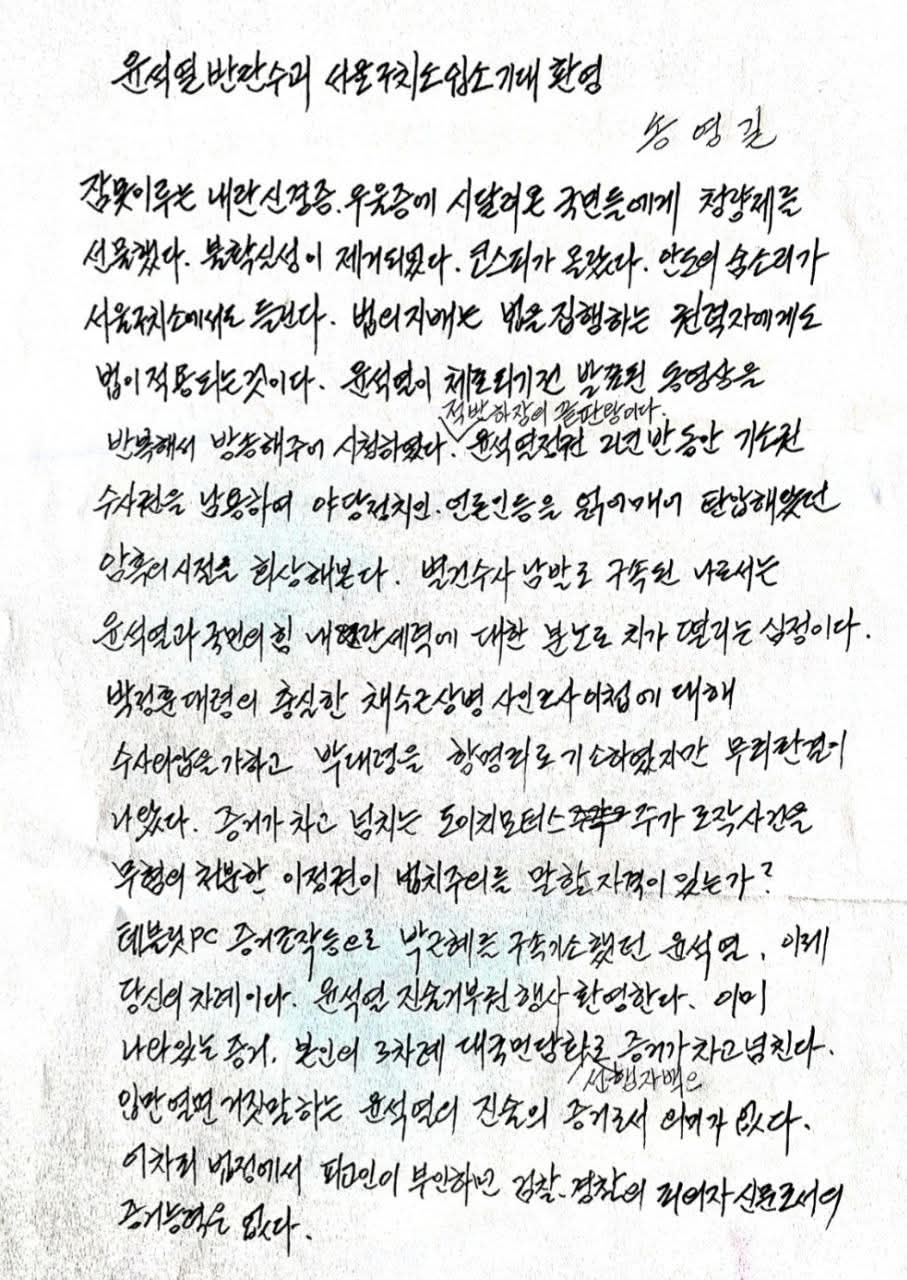 윤석열 반란수괴 서울구치소 입소 기대 환영
송영길
잠못이루는 내란신경증. 우울증에 시달려온 국민들에게 청량제를
선물했다. 불확실성이 제거되었다. 코스피가 올랐다. 안도의 숨소리가
서울구치소에서도 들린다. 법의지배는 법을 집행하는 권력자에게도
법이 적용되는것이다. 윤석열이 체포되기전 발표된 동영상을
적반하장의 끝판왕이다.
반복해서 방송해주어 시청하였다. 윤석열정권 2년 반 동안 기소권
수사권을 남용하여 야당정치인. 언론인등을 얽어매어 탄압해왔던
암흑의 시절을 회상해본다. 별건수사 남발로 구속된 나로서는
윤석열과 국민의힘 내란세력에 대한 분노로 치가 떨리는 심정이다.
박정훈대령의 충실한 채수근상병 사인조사 이첩에 대해
수사외압을 가하고 박대령을 항명죄로 기소하였지만 무죄판결이
나왔다. 증거가 차고 넘치는 도이치모터스 주가 조작사건을
무혐의 처분한 이정권이 법치주의를 말할 자격이 있는가?
테블릿PC 증거조작등으로 박근혜를 구속기소했던 윤석열, 이제
당신의 차례이다. 윤석열 진술거부권 행사 환영한다. 이미
나와있는 증거. 본인의 3차례 대국민담화로 증거가 차고 넘친다.
선행자백은
입만열면 거짓말하는 윤석열의 진술의 증거로서 의미가 없다.
어차피 법정에서 피고인이 부인하면 검찰. 경찰의 피의자 신문조서의
증거능력은 없다.